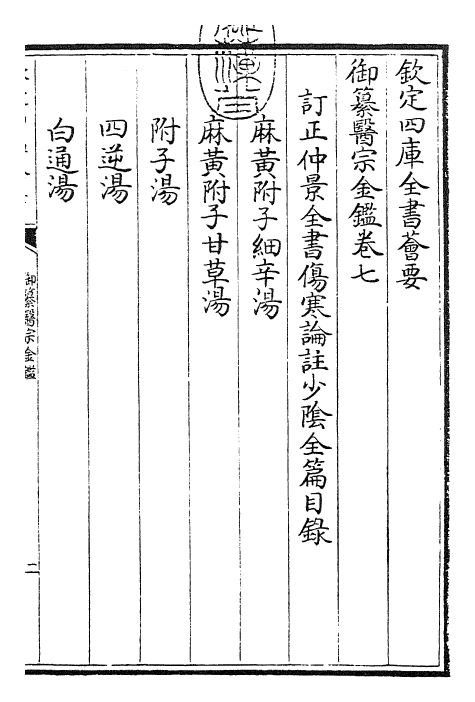 欽定四庫全書薈要
御纂醫宗金鑑卷七
訂正仲景全書傷寒論註少陰全篇目錄
麻黃附子細辛湯
麻黃附子甘草湯
附子湯
四逆湯
白通湯
御纂醫宗金鑑
二